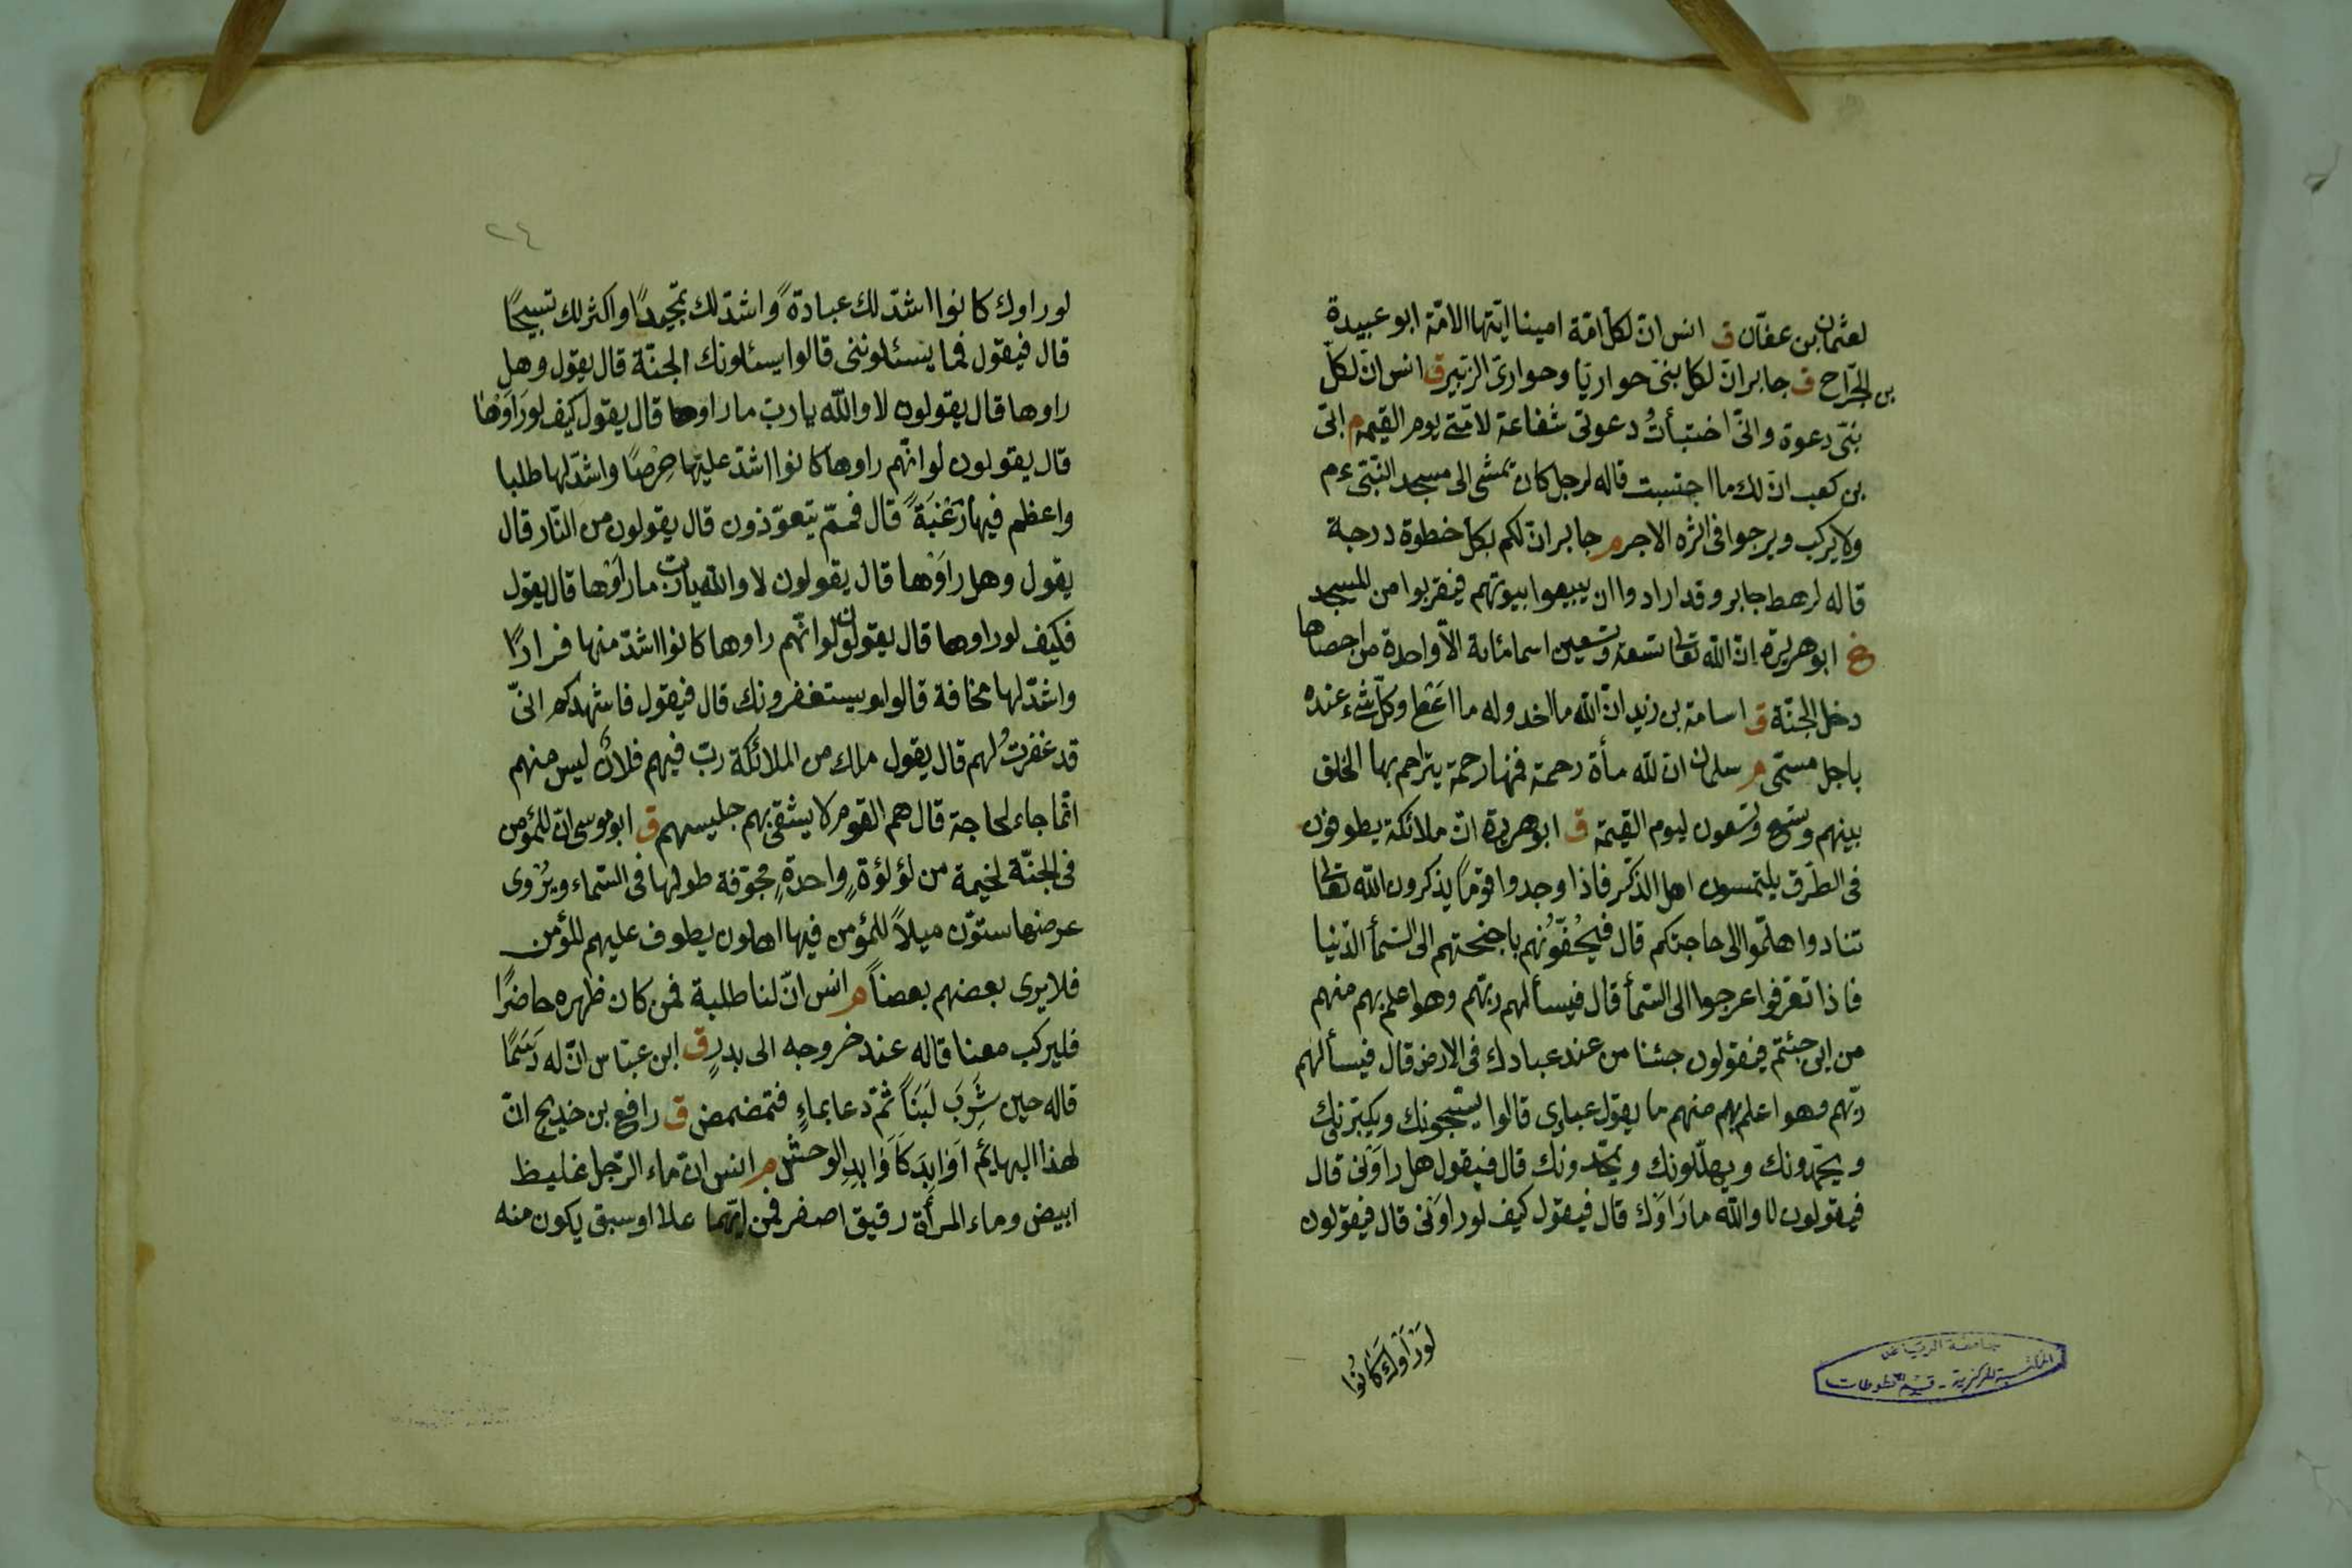 لعثمان بن عفّان ق انس انّ لكلّ امّة امينا ايتها الامّة ابو عبيدة
بن الجّراح ق جابر انّ لكل نبىّ حواريّا وحوارىّ الزبير ق انس انّ لكلّ
نبىّ دعوة وانّى اختبأتُ دعوتى شفاعة لامّتى يوم القيمة م ابىّ
بن كعب انّ لك ما احتسبت قاله لرجل كان يمشى الى مسجد النّبىّ ءم
ولا يركب ويرجوا فى اثره الاجر م جابر انّ لكم بكلّ خطوة درجة
قاله لرهط جابر وقد ارادوا ان يبيعوا بيوتهم فيقربوا من المسجد
خ ابو هريرة انّ الله تعالى تسعة وتسعين اسما مائة الّا واحدة من احصاها
دخل الجنّة ق اسامة بن زيد انّ الله ما اخد وله ما اعطى وكلّ شئ عنده
باجل مسمّى م سلمان انّ لله مأة رحمة فمنها رحمة يتراحم بها الخلق
بينهم وتسع وتسعون ليوم القيمة ق ابو هريرة انّ ملائكة يطوفون
فى الطّرق يلتمسون اهل الذّكر فاذا وجدوا قومًا يذكرون الله تعالى
تنادوا هلمّوا الى حاجتكم قال فيحُفّوُنهم باجنحتهم الى السّمأ الدّنيا
فاذا تفرّقوا عرجوا الى السّمأ قال فيسألهم ربّهم وهو اعلم بهم منهم
من اين جئتم فيقولون جئنا من عند عبادك فى الارض قال فيسألهم
ربّهم وهو اعلم بهم منهم ما يقول عبادى قالوا يسبّحونك ويكبّرنك
ويحّمدونك ويهلّلونك ويمجّدونك قال فيقول هل راَوْنى قال
فيقولون لا والله ما رَاَوْك قال فيقول كيف لو راوَنى قال فيقولون
لَوْرَاَوْكَ كَانُوا
جامعة الرياض
المكتبة المركزية - قسم المخطوطات
٢٤
لو راوك كانوا اشدّ لك عبادةً واشدّ لك تمّجيدًا واكثر لك تسبيحًا
قال فيقول فما يسئلوننى قالوا يسئلونك الجنّة قال يقول وهل
راوها قال يقولون لا والله يا ربّ ما راوها قال يقول كيف لو رَاَوْها
قال يقولون لو انّهم راوها كانوا اشدّ عليها حِرْصًا واشدّ لها طلبا
واعظم فيها رَغْبَةً قال فممّ يتعوّذون قال يقولون من النّار قال
يقول وهل راَوْها قال يقولون لا والله يا ربّ ما راَوْها قال يقول
فكيف لو راوها قال يقولون لو انّهم راوها كانوا اشدّ منها فرارًا
واشدّ لها مخافة قالوا ويستغفرونك قال فيقول فاشهدكم انّى
قد غفرتُ لهم قال يقول ملك من الملائكة ربّ فيهم فلانٌ ليس منهم
انّما جاء لحاجة قال هم القوم لا يشقى بهم جليسهم ق ابو موسى انّ للمؤمن
فى الجنّة لخيمة من لؤلؤةٍ واحدةٍ مجوّفة طولها فى السّماء ويُرْوى
عرضها ستّون ميلاً للمؤمن فيها اهلون يطوف عليهم المؤمن
فلا يرى بعضهم بعضاً م انس انّ لنا طلبة فمن كان ظهره حاضرًا
فليركب معنا قاله عند خروجه الى بدرٍ ق ابن عبّاس انّ له دَسَمًا
قاله حين شَرِبَ لَبَنَاً ثمّ دعا بماءٍ فتمضمض ق رافع بن خديج انّ
لهذا البهائم اَوَابِدَ كَاَوَابِدِ الوحش م انس انّ ماء الرّجل غليظ
ابيض وماء المرأة رقيق اصفر فمن ايّهما علا او سبق يكون منه